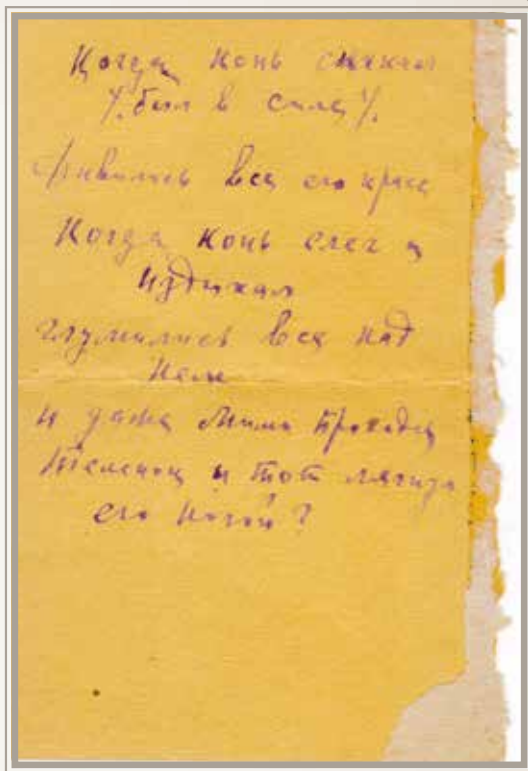 Когда конь скакал
/. был в силе /.
дивились все его красе
Когда конь слег и
издыхал
глумились все над
нем
и даже мимо проходя
теленок и тот лягнул
его ногой?